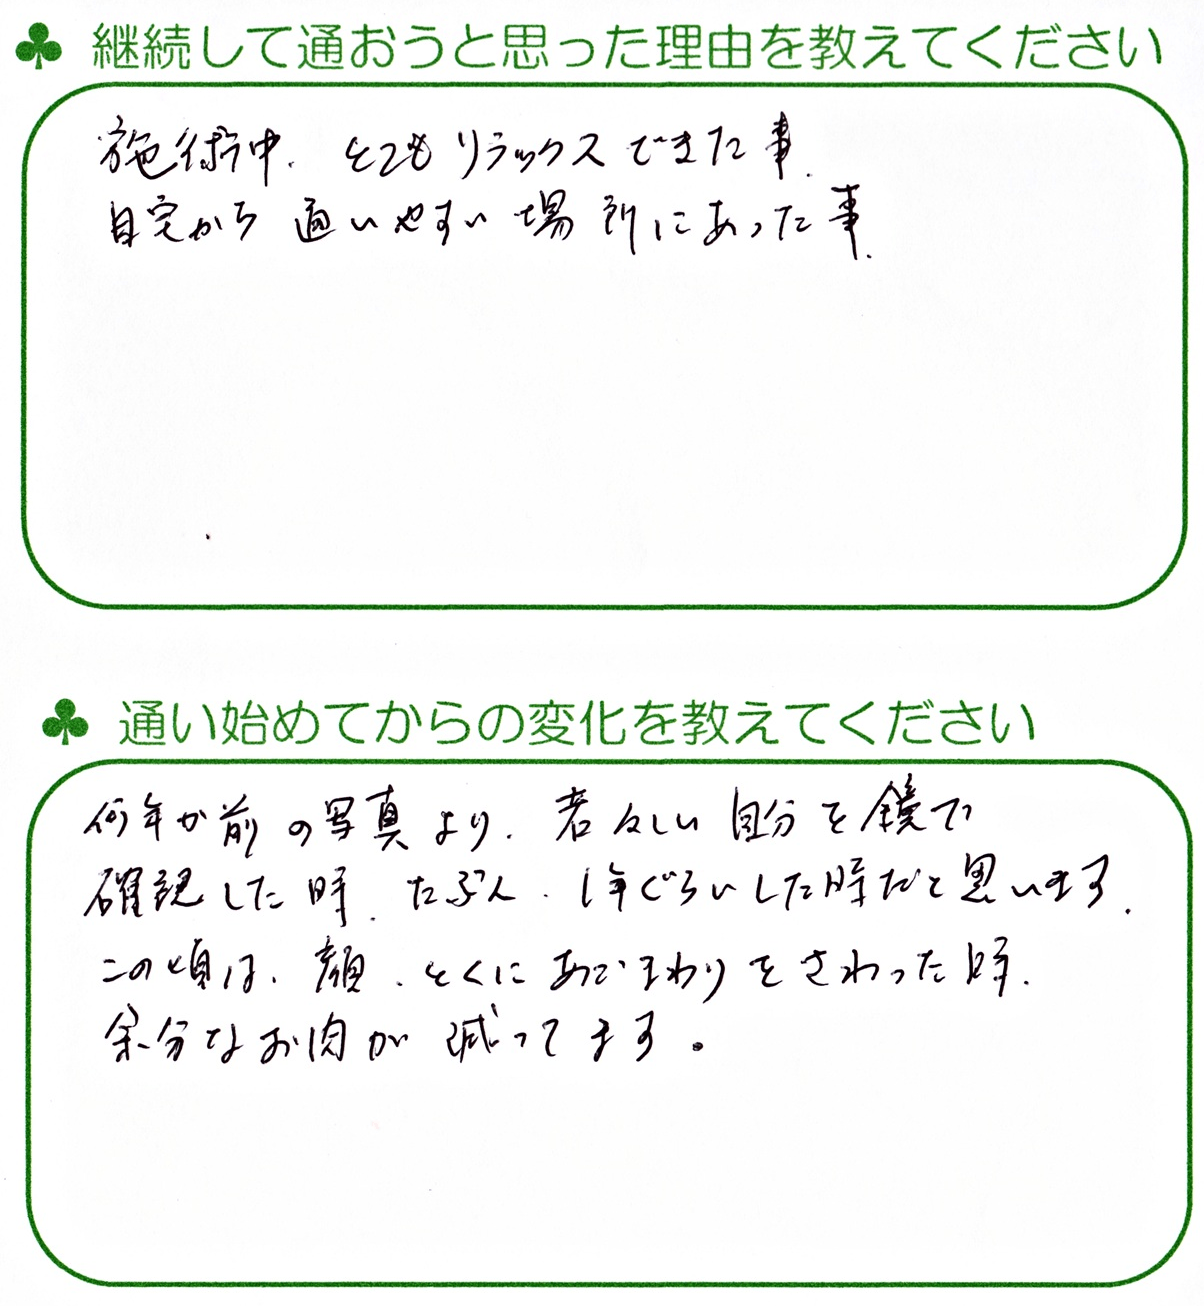 ♣ 継続して通おうと思った理由を教えてください
施術中、とてもリラックスできた事、
自宅から通いやすい場所にあった事、
♣ 通い始めてからの変化を教えてください
何年か前の写真より、若々しい自分を鏡で
確認した時、たぶん、1年ぐらいした時だと思います、
この頃は、顔、とくにあごまわりをさわった時、
余分なお肉が減ってます。